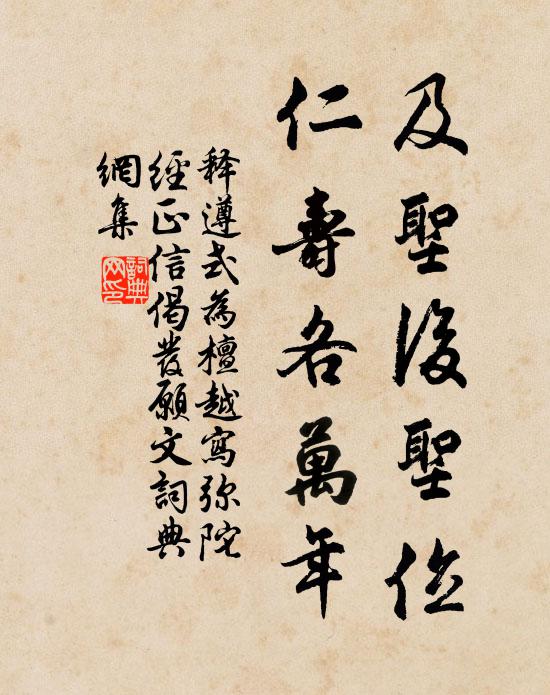 及聖後聖位
仁壽各萬年
释遵式為檀越寫弥陀
經正信偈發願文詞典
網集
詞典
网印